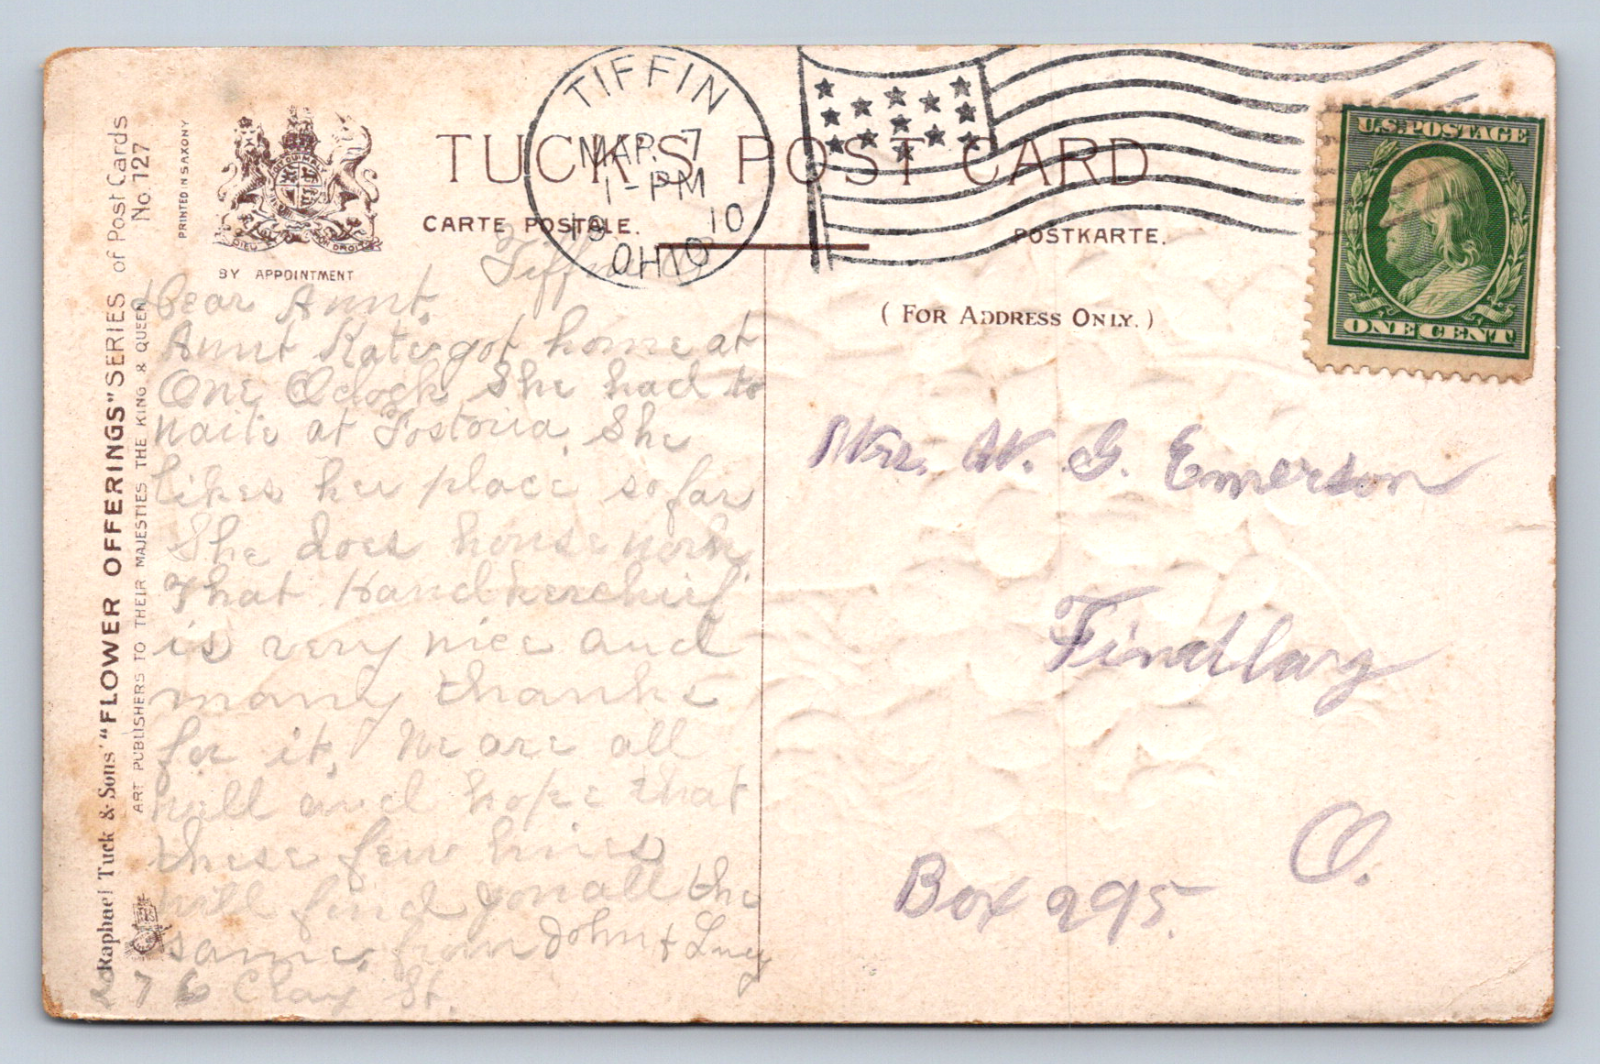 TUCK'S POST CARD
CARTE POSTALE.
POSTKARTE.
(FOR ADDRESS ONLY.)
TIFFIN
MAR. 7
1-PM
19 10
OHIO
U.S. POSTAGE
ONE CENT
PRINTED IN SAXONY
BY APPOINTMENT
DIEU ET MON DROIT
Raphael Tuck & Sons' "FLOWER OFFERINGS" SERIES of Post Cards
No. 127
ART PUBLISHERS TO THEIR MAJESTIES THE KING & QUEEN
Tiffin O
Dear Aunt.
Aunt Kate got home at
One Oclock She had to
waite at Fostoria. She
likes her place so far
She does house work
That Handkerchief
is very nice and
many thanks
for it, We are all
well and hope that
these few lines
will find you all the
same. from John + Lucy
276 Clay St.
Mrs. W. G. Emerson
Findlay
O.
Box 295.